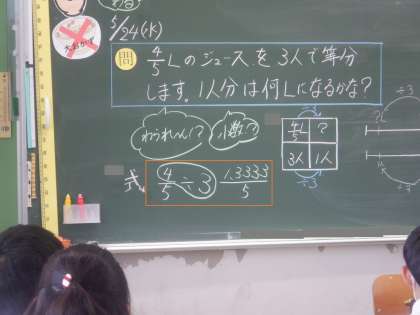 5/24(火)
問 4/5Lのジュースを3人で等分
します。1人分は何Lになるかな?
わられへん!?
小数?
÷3
4/5L ?
3人 1人
÷3
式 4/5÷3 1.3333/5
÷3